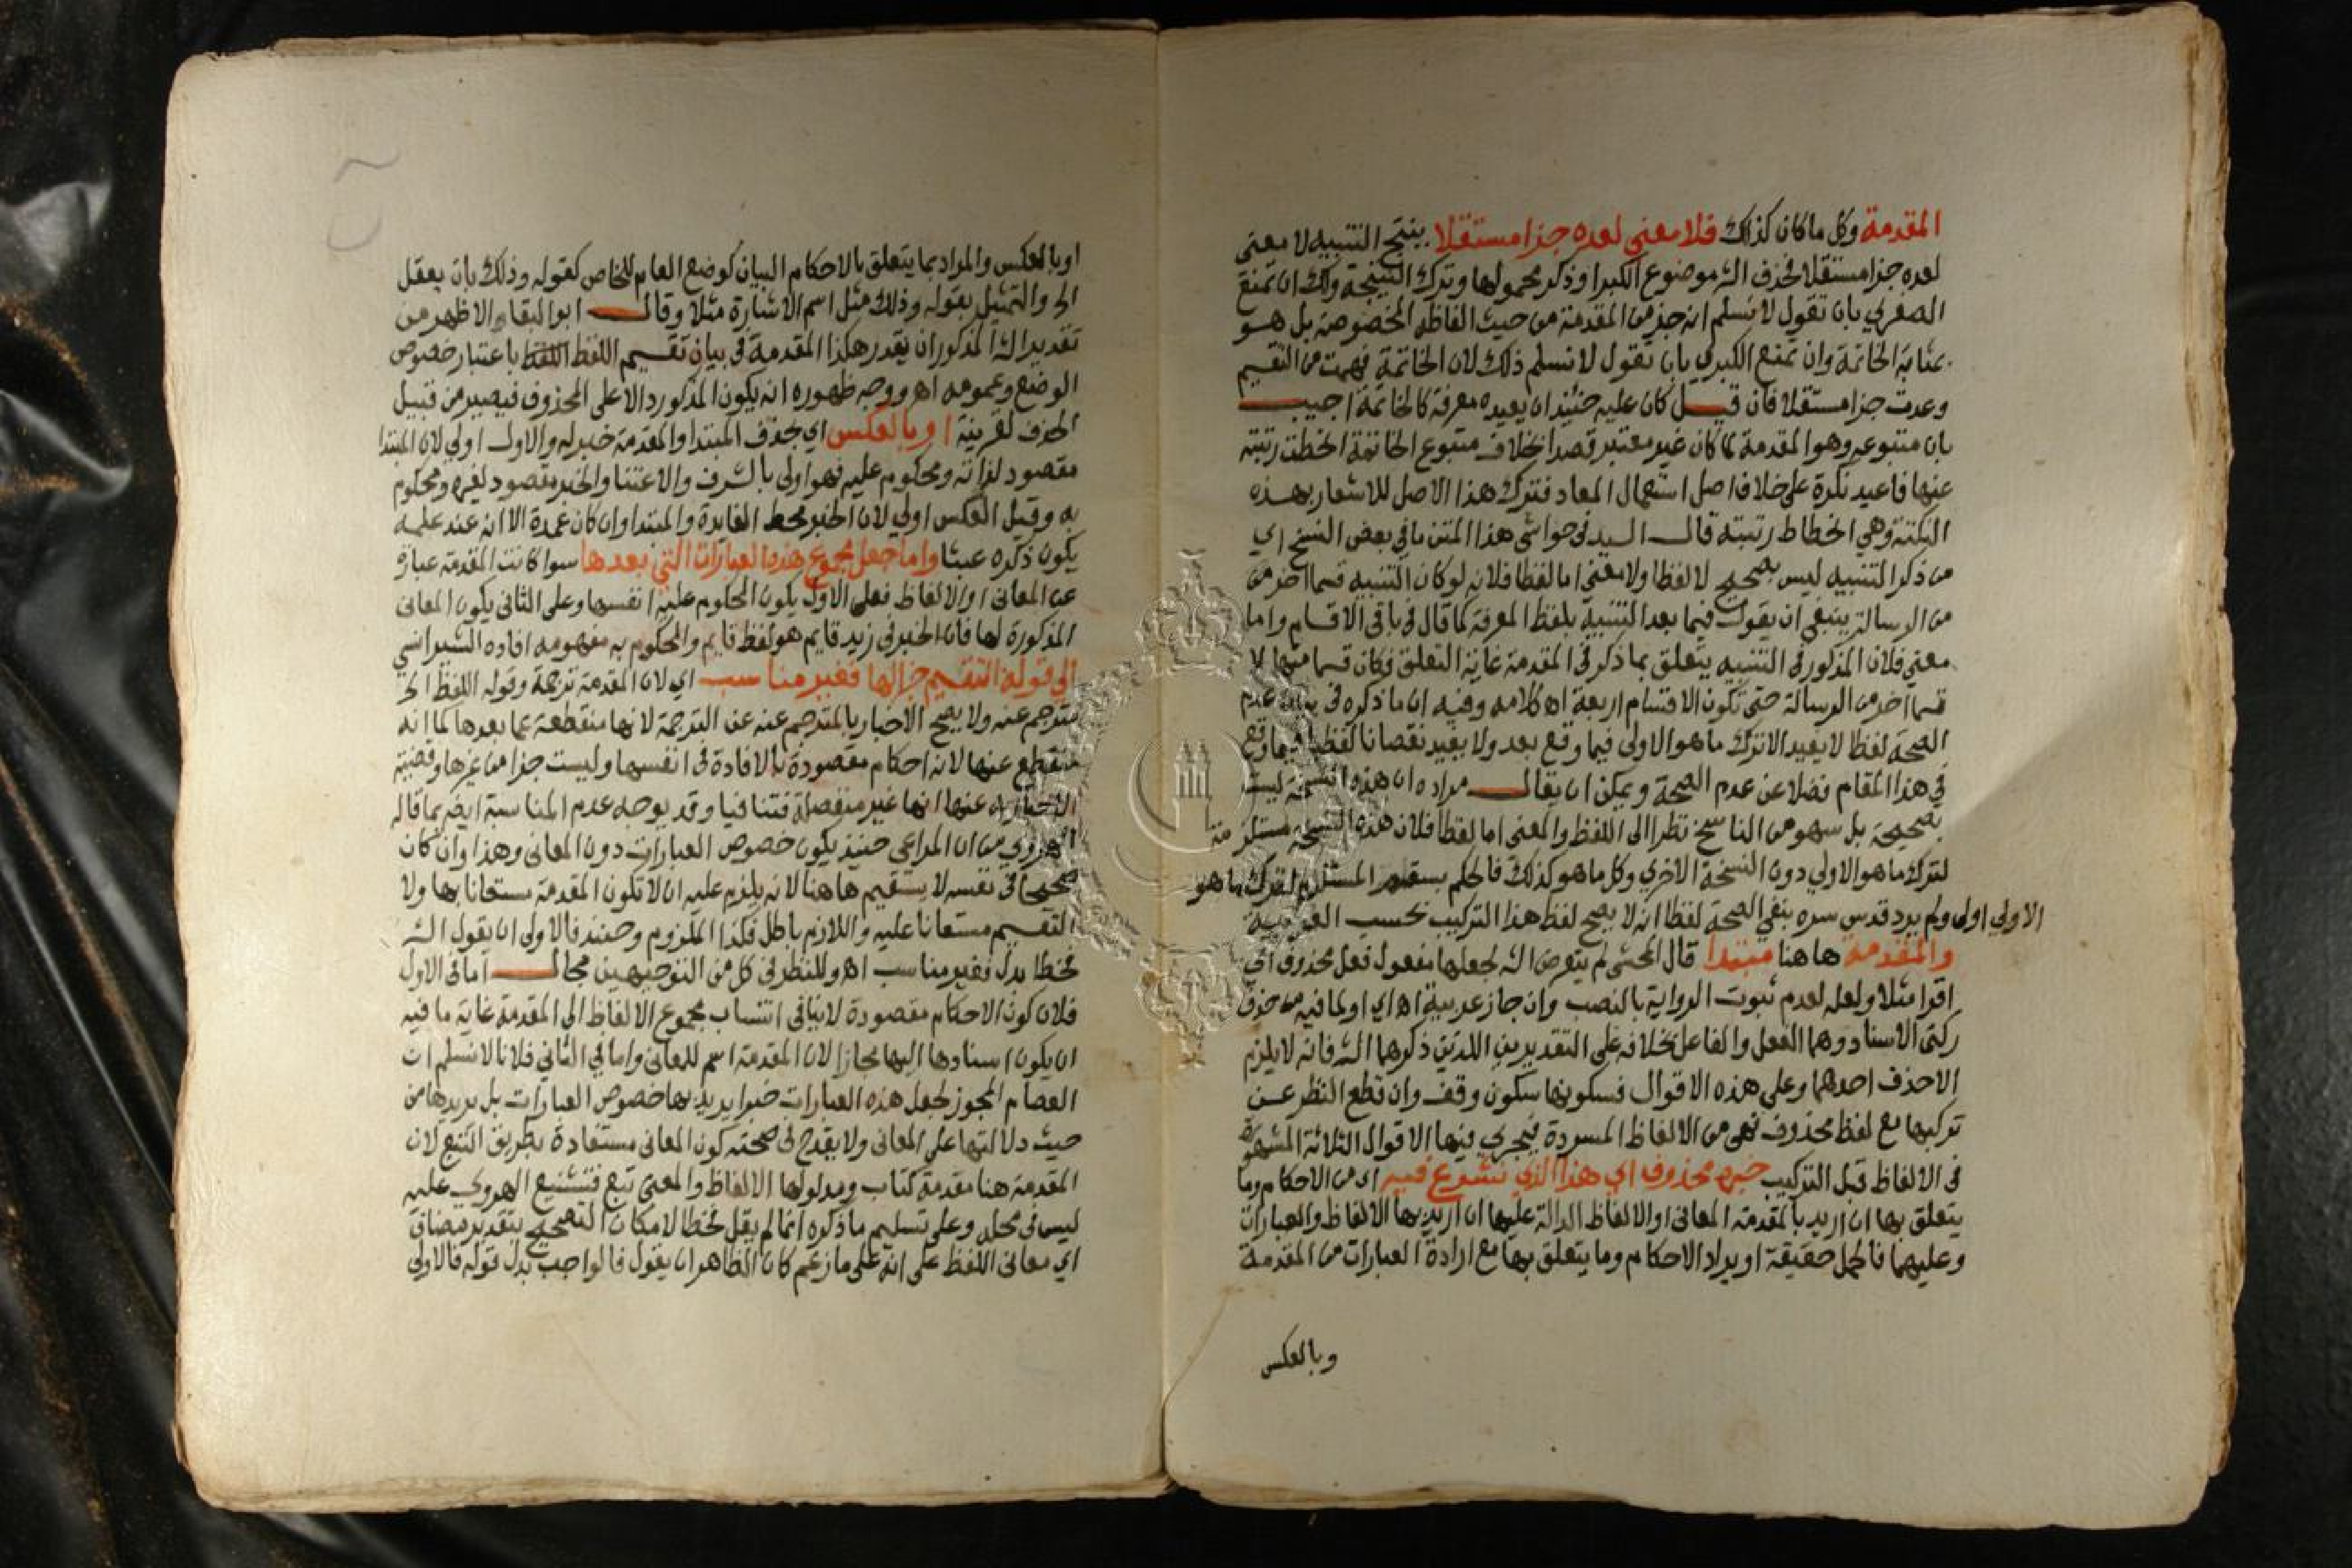 المقدمة وكل ما كان كذلك فلا معنى لعده جزا مستقلا ينتج التنبيه لا معنى
لعده جزا مستقلا فحذف الشـ موضوع الكبرا وذكر محمولها وترك النتيجة ولك ان تمنع
الصغري بان تقول لا نسلم انه جزء من المقدمة من حيث الفاظه المخصوصة بل هو
بمثابة الخاتمة وان تمنع الكبري بان تقول لا نسلم ذلك لان الخاتمة فهمت من التقسيم
وعدت جزا مستقلا فان قيل كان عليه حينئذ ان يعيده معرفة كالخاتمة اجيب
بان متبوعه وهو المقدمة لما كان غير معتبر قصدا بخلاف متبوع الخاتمة انحطت رتبته
عنها فاعيد نكرة على خلاف اصل استعمال المعاد فترك هذا الاصل للاشعار بهذه
النكتة وهي انحطاط رتبته قال السيد في حواشي هذا المتن ما في بعض النسخ اي
من ذكر التنبيه ليس بصحيح لا لفظا ولا معنى اما لفظا فلانه لو كان التنبيه قسما اخر من
من الرسالة ينبغي ان يقول فيما بعد التنبيه بلفظ المعرفة كما قال في باقي الاقسام واما
معنى فلان المذكور في التنبيه يتعلق بما ذكر في المقدمة غاية التعلق فكان قسما منها لا
قسما اخر من الرسالة حتى تكون الاقسام اربعة اه كلامه وفيه ان ما ذكره في بيان عدم
الصحة لفظا لا يفيد الا ترك ما هو الاولى فيما وقع بعد ولا يفيد نقصانا لفظيا فيما وقع
في هذا المقام فضلا عن عدم الصحة ويمكن ان يقال مراده ان هذه النسخة ليست
بصحيحة بل سهو من الناسخ نظرا الى اللفظ والمعنى اما لفظا فلان هذه النسخة مستلزمة
لترك ما هو الاولي دون النسخة الاخري وكل ما هو كذلك فالحكم المستلزم لترك ما هو
الاولي اولى ولم يرد قدس سره بنفي الصحة لفظا انه لا يصح لفظ هذا التركيب بحسب العربية
والمقدمة ها هنا مبتدا قال المحشي لم يتعرض الشـ لجعلها مفعول فعل محذوف اي
اقرا مثلا ولعله لعدم ثبوت الرواية بالنصب وان جاز عربية اه اي اولما فيه من حذف
ركني الاسناد وهما الفعل والفاعل بخلافه على التقديرين اللذين ذكرهما الشـ فانه لا يلزم
الا حذف احدهما وعلى هذه الاقوال فسكونها سكون وقف وان قطع النظر عن
تركيبها مع لفظ محذوف فهي من الالفاظ المسرودة فيجري فيها الاقوال الثلاثة المشهورة
في الالفاظ قبل التركيب خبره محذوف اي هذا الذي نشرع فيه اي من الاحكام وما
يتعلق بها ان اريد بالمقدمة المعاني او الالفاظ الدالة عليها ان اريد بها الالفاظ والعبارات
وعليهما فالحمل حقيقة او يراد الاحكام وما يتعلق بها مع ارادة العبارات من المقدمة
وبالعكس
او بالعكس والمراد بما يتعلق بالاحكام البيان كوضع العام للخاص كقوله وذلك بان يعقل
الخ والتمثيل بقوله وذلك مثل اسم الاشارة مثلا وقال ابو البقاء الاظهر من
تقدير الشـ المذكور ان يقدر هكذا المقدمة في بيان تقسيم اللفظ اللفظ باعتبار خصوص
الوضع وعمومه اه ووجه ظهوره انه يكون المذكور دالا على المحذوف فيصير من قبيل
الحذف لقرينة او بالعكس اي بحذف المبتدا والمقدمة خبر له والاول اولي لان المبتدا
مقصود لذاته ومحكوم عليه فهو اولى بالشرف والاعتنا والخبر مقصود لغيره ومحكوم
به وقيل العكس اولي لان الخبر محط الفايدة والمبتدا وان كان عمدة الا انه عند علمه
يكون ذكره عبثا واما جعل مجموع هذه العبارات التي بعدها سوا كانت المقدمة عبارة
عن المعاني او الالفاظ فعلى الاول يكون المحكوم عليه انفسها وعلى الثاني يكون المعاني
المذكورة لها فان الخبر في زيد قايم هو لفظ قايم والمحكوم به مفهومه افاده الشبراسي
الي قوله التقسيم خبرا لها فغير مناسب اي لان المقدمة ترجمة وقوله اللفظ الخ
مترجم عنه ولا يصح الاخبار بالمترجم عنه عن الترجمة لانها منقطعة عما بعدها كما انه
منقطع عنها لانه احكام مقصودة بالافادة في انفسها وليست جزا من غيرها وقضية
الاخبار به عنها انها غير منفصلة فتنافيا وقد يوجه عدم المناسبة ايضا بما قاله
الهروي من ان المراعى حينئذ يكون خصوص العبارات دون المعاني وهذا وان كان
صحيحا في نفسه لا يستقيم هاهنا لانه يلزم عليه ان لا تكون المقدمة مستعانا بها ولا
التقسيم مستعانا عليه واللازم باطل فكذا الملزوم وحينئذ فالاولى ان يقول الشـ
فخطا بدل فغير مناسب اه وللنظر في كل من التوجيهين مجال اما في الاول
فلان كون الاحكام مقصودة لا ينافي انتساب مجموع الالفاظ الى المقدمة غاية ما فيه
ان يكون اسنادها اليها مجازا لان المقدمة اسم للمعاني واما في الثاني فلانا لا نسلم ان
العصام المجوز لجعل هذه العبارات خبرا يريد بها خصوص العبارات بل يريدها من
حيث دلالتها على المعاني ولا يقدح في صحته كون المعاني مستفادة بطريق التبع لان
المقدمة هنا مقدمة كتاب ومدلولها الالفاظ والمعنى تبع فتشنيع الهروي عليه
ليس في محله وعلى تسليم ما ذكره انما لم يقل فخطا لامكان التصحيح بتقدير مضاف
اي معاني اللفظ على انه على ما زعم كان الظاهر ان يقول فالواجب بدل قوله فالاولى